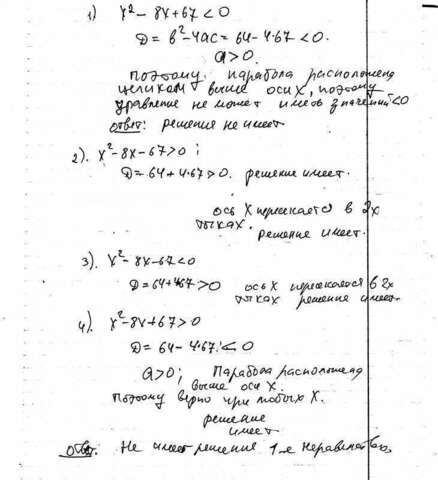 1) x² - 8x + 67 < 0
D = b² - 4ac = 64 - 4·67 < 0.
a > 0.
Поэтому парабола расположена
целиком выше оси x, поэтому
уравнение не может иметь значений < 0
Ответ: решение не имеет
2). x² - 8x - 67 > 0 ;
D = 64 + 4·67 > 0. решение имеет.
ось x пересекается в 2х
тчках.
решение имеет.
3). x² - 8x - 67 < 0
D = 64 + 4·67 > 0 ось x пересекается в 2х
тчках решение имеет.
4). x² - 8x + 67 > 0
D = 64 - 4·67 < 0
a > 0; Парабола расположена
выше оси x.
Поэтому верно при любых x.
решение
имеет
Ответ. Не имеет решения 1-е неравенство.